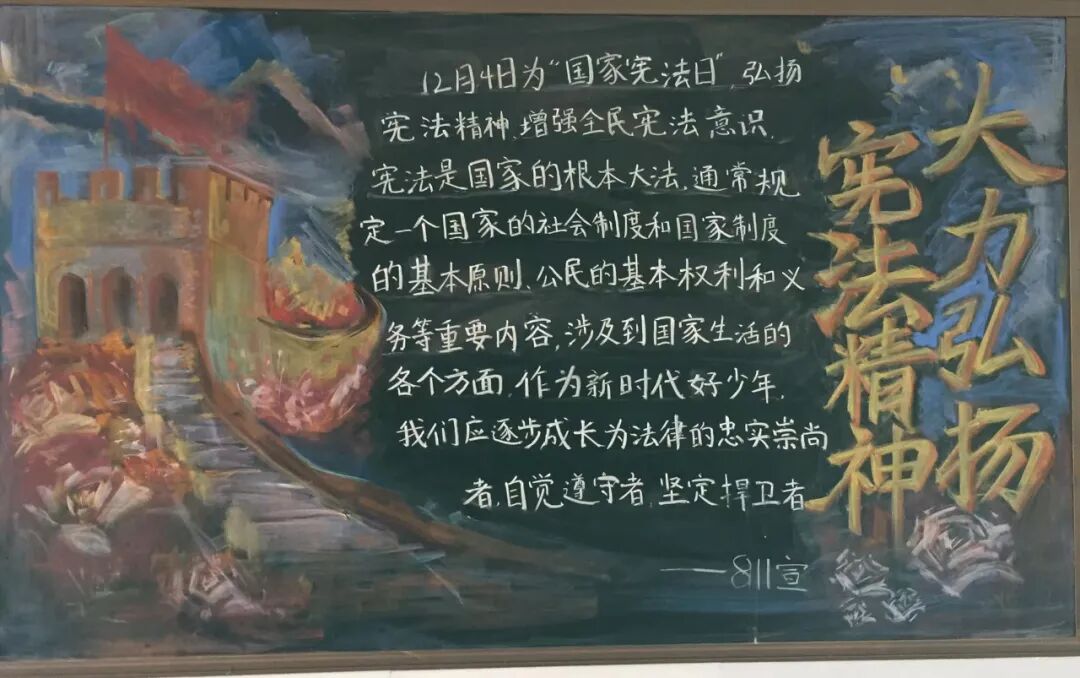 大力弘扬
宪法精神
12月4日为“国家宪法日”,弘扬
宪法精神,增强全民宪法意识.
宪法是国家的根本大法,通常规
定一个国家的社会制度和国家制度
的基本原则、公民的基本权利和义
务等重要内容,涉及到国家生活的
各个方面,作为新时代好少年,
我们应逐步成长为法律的忠实崇尚
者,自觉遵守者,坚定捍卫者
——811宣